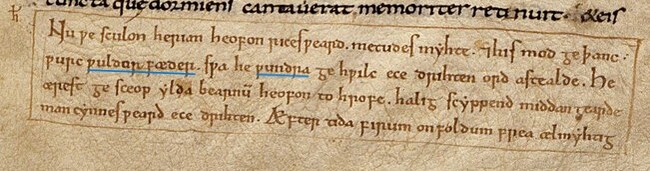 cuncta que dormiens cantaverat memoriter retinuit. & eis
Nu ƿe sculon herian heofon rices ƿeard. metudes myhte. ⁊his mod geþanc.
ƿurc ƿuldor fæder. sƿa he ƿundra ge hƿilc ece drihten ord astealde. He
ærest ge sceop ylda bearnū heofon to hrofe. halig scyppend middan gearde
man cynnes ƿeard ece drihten. Æfter tida firum on foldum frea ælmyhtig